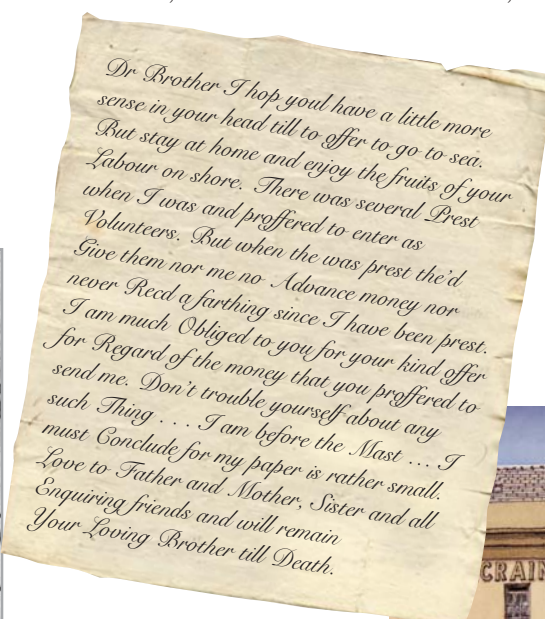 Dr Brother I hop youl have a little more
sense in your head till to offer to go to sea.
But stay at home and enjoy the fruits of your
Labour on shore. There was several Prest
when I was and proffered to enter as
Volunteers. But when the was prest the'd
Give them nor me no Advance money nor
never Recd a farthing since I have been prest.
I am much Obliged to you for your kind offer
for Regard of the money that you proffered to
send me. Don't trouble yourself about any
such Thing . . . I am before the Mast ... I
must Conclude for my paper is rather small.
Love to Father and Mother, Sister and all
Enquiring friends and will remain
Your Loving Brother till Death.
CRAIN